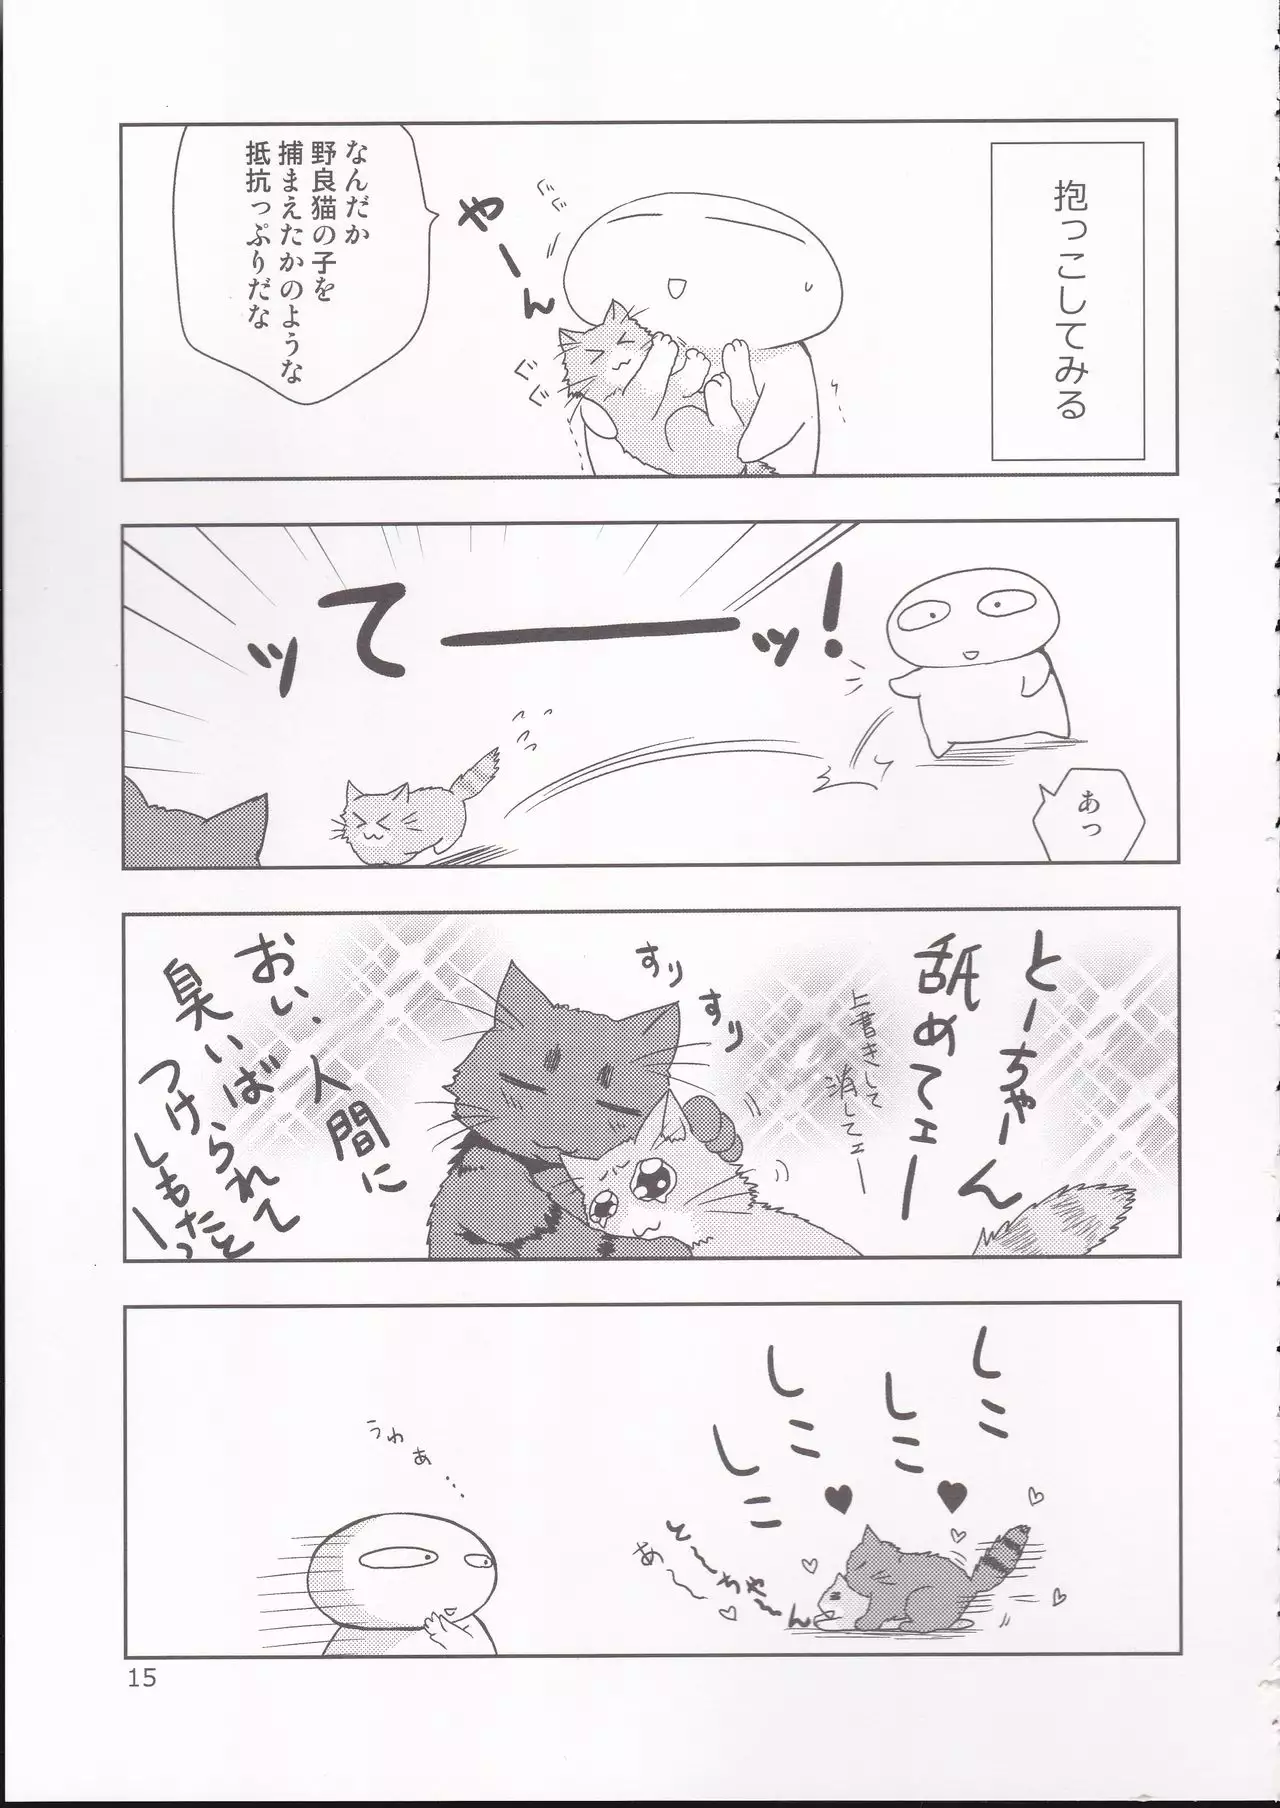 抱っこしてみる
なんだか
野良猫の子を
捕まえたかのような
抵抗っぷりだな
やーん
ぐぐ
ぐぐ
ッてーーッ!
あっ
とーちゃーん
舐めてェー
上書きして
消してェー
すり
すり
おい、人間に
臭いばられて
つけしもったと
しこ
しこ
しこ
しこ
とーちゃーん
あ〜〜
うわぁ…
15